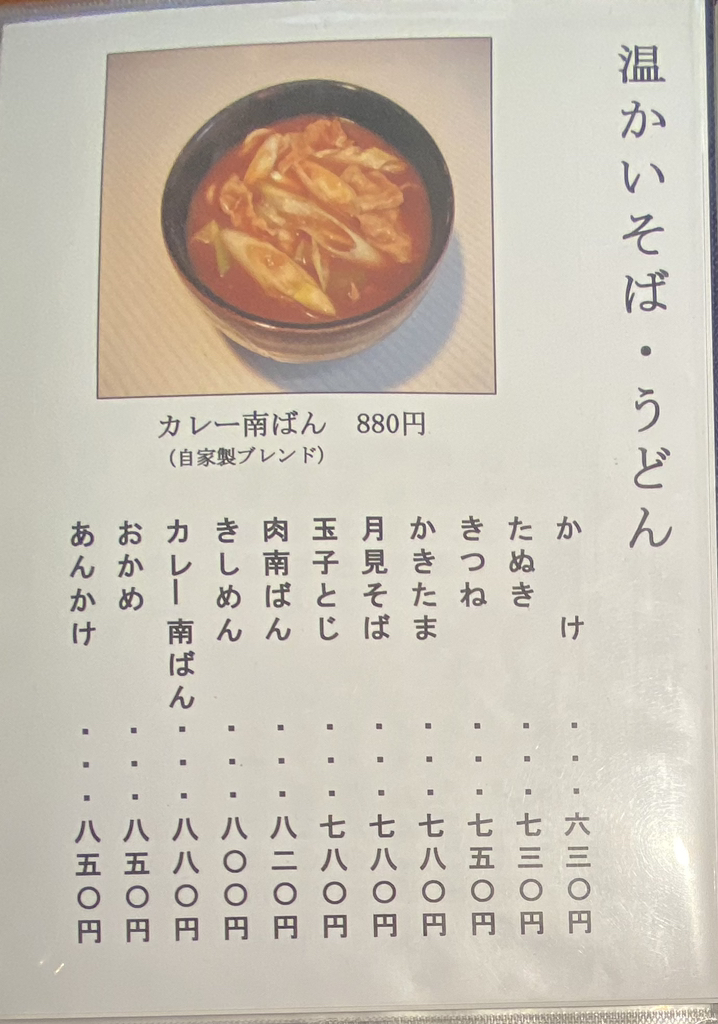 温かいそば・うどん
カレー南ばん　880円
(自家製ブレンド)
かけ・・・六三〇円
たぬき・・・七三〇円
きつね・・・七五〇円
かきたま・・・七八〇円
月見そば・・・七八〇円
玉子とじ・・・七八〇円
肉南ばん・・・八二〇円
きしめん・・・八〇〇円
カレー南ばん・・・八八〇円
おかめ・・・八五〇円
あんかけ・・・八五〇円